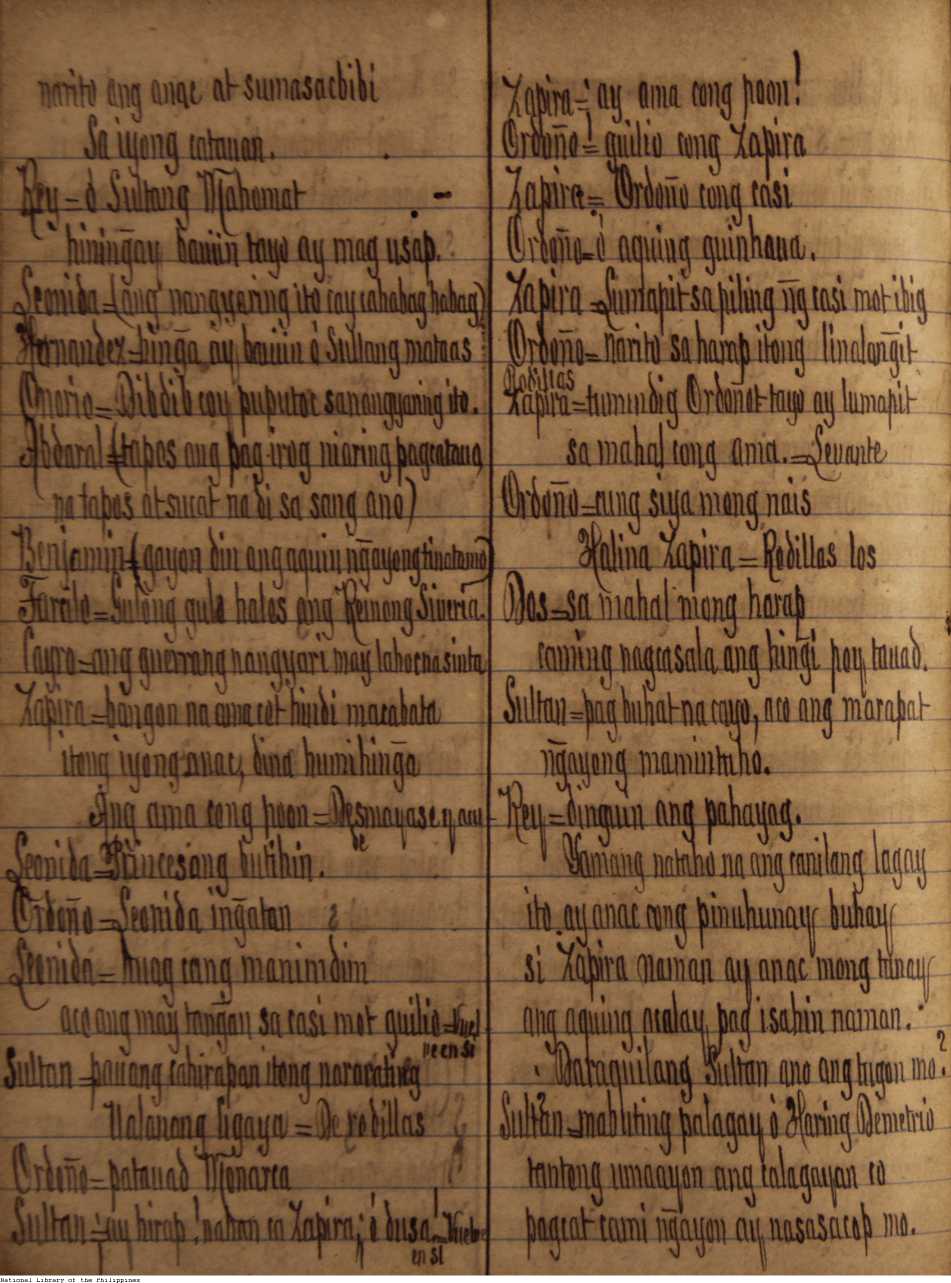 narito ang anac at sumasacbibi
Sa iyong catauan.
Rey = ó Sultang Mahomat
hiningay bauiin tayo ay mag usap.
Leonida = (ang nangyaring ito cay cahabag habag)
Hernandez = hinga ay bauiin ó Sultang mataas
Onorio = Dibdib coy puputoc sa nangyaring ito.
Abdaral = (tapos ang pag irog niaring pagcatauo
na tapos at sucat na di sa sang ano)
Benjamin = (gayon din ang aquin ngayong tinatamo)
Farcilo = Sulong gulo halos ang Reinong Siveria.
Cayro = ang guerrang nangyari may lahoc na sinta
Zapira = bangon na ama cot hindi macabata
itong iyong anac, dina humihinga
Ang ama cong poon = Desmayase y acu-
de
Leonida = Princesang butihin.
Ordoño = Leonida ingatan
Leonida = huag cang manimdim
aco ang may tangan sa casi mot guilio = Vuel
ve en si
Sultan = pauang cahirapan itong
Ualanang ligaya = De rodillas
Ordoño = patauad Monarca
Sultan = ¡ay hirap! nahan ca Zapira; ó dusa! = Vuelve
en si
Zapira = ¡ay ama cong poon!
Ordoño = guilio cong Zapira
Zapira = Ordoño cong casi
Ordoño = ó aquing guinhaua.
Zapira = Lumapit sa piling ng casi mot ibig
Ordoño = Narito sa harap itong linalangit
Rodillas
Zapira = tumindig Ordoñot tayo ay lumapit
sa mahal cong ama. = Levante
Ordoño = cung siya mong nais
Halina Zapira = Rodillas los
Dos = sa mahal mong harap
caming nagcasala ang hingi poy tauad.
Sultan = pag buhat na cayo, aco ang marapat
ngayong mamintuho.
Rey = dinguin ang pahayag.
Yamang nataho na ang canilang lagay
ito ay anac cong pinuhunay buhay
si Zapira naman ay anac mong tunay
ang aquing acalay, pag isahin naman.
Daraquilang Sultan ano ang tugon mo?
Sultan = mabuting palagay ó Haring Demetrio
tantong umaayon ang calagayan co
pagcat cami ngayon ay nasasacop mo.
National Library of the Philippines